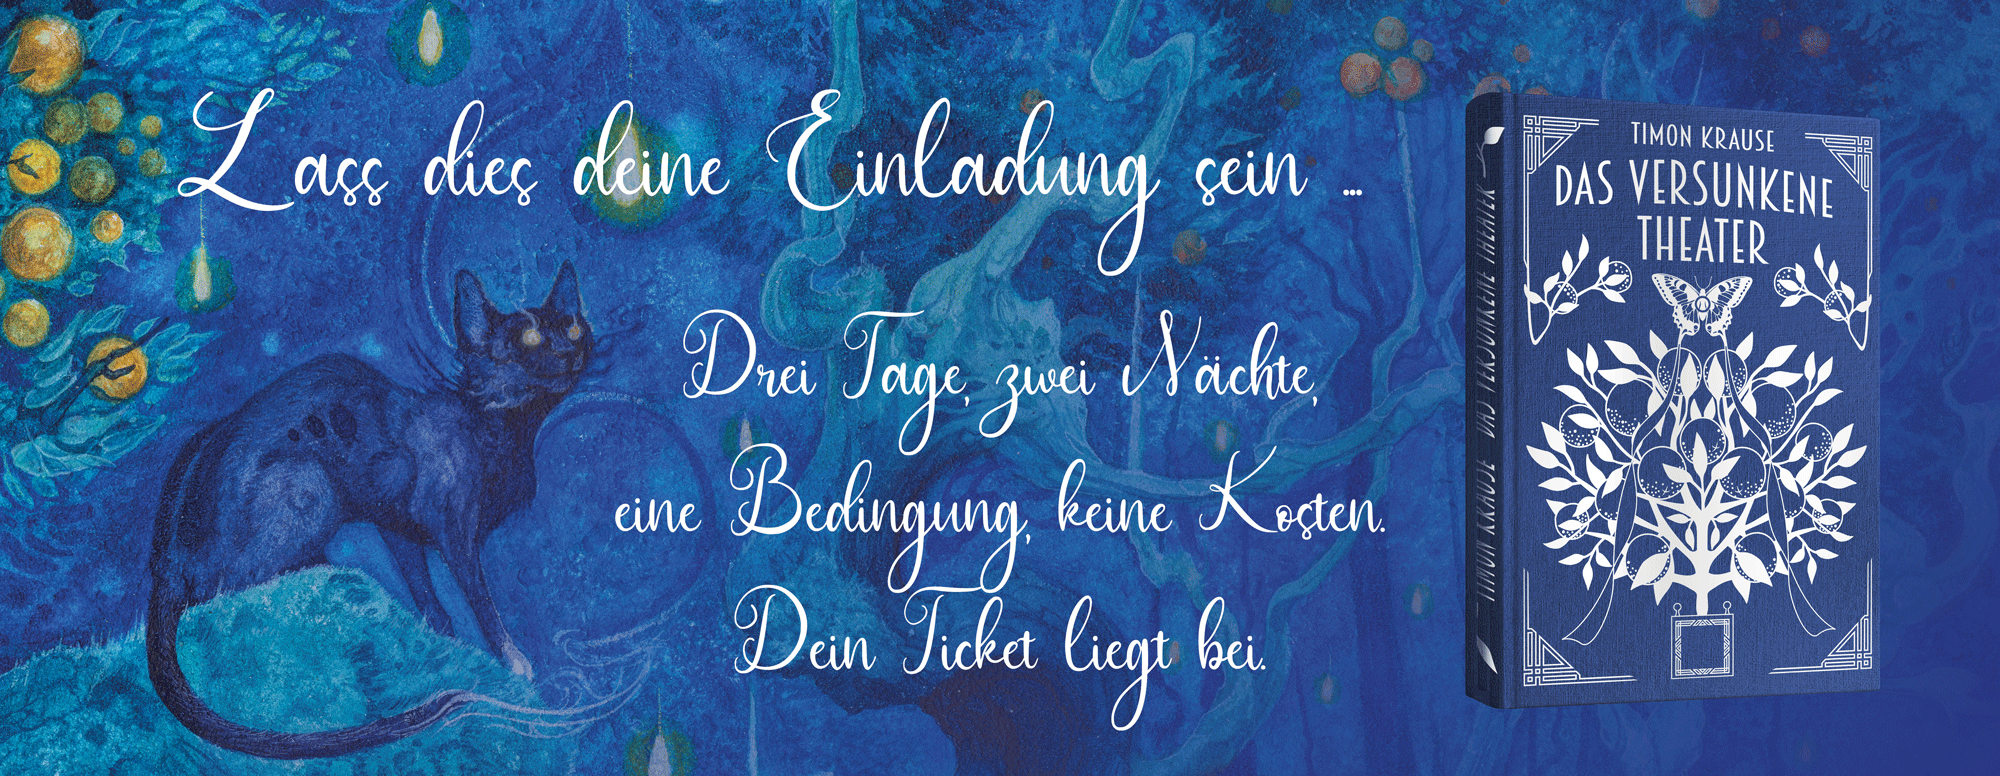 Lass dies deine Einladung sein ...
Drei Tage, zwei Nächte,
eine Bedingung, keine Kosten.
Dein Ticket liegt bei.
TIMON KRAUSE
DAS VERSUNKENE
THEATER
TIMON KRAUSE DAS VERSUNKENE THEATER